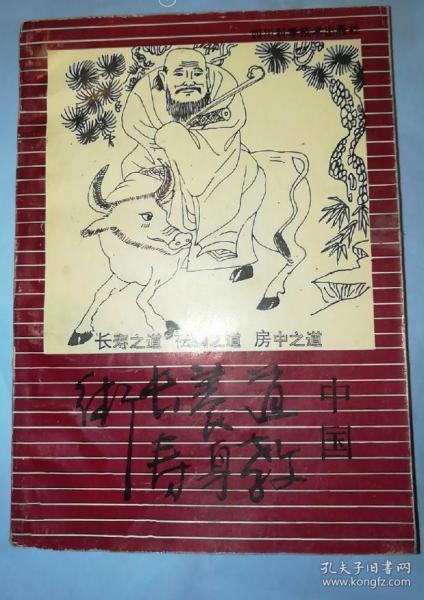 长寿之道 祛病之道 房中之道
中国
道教
养身
长寿
術
孔夫子旧书网
www.kongfz.com